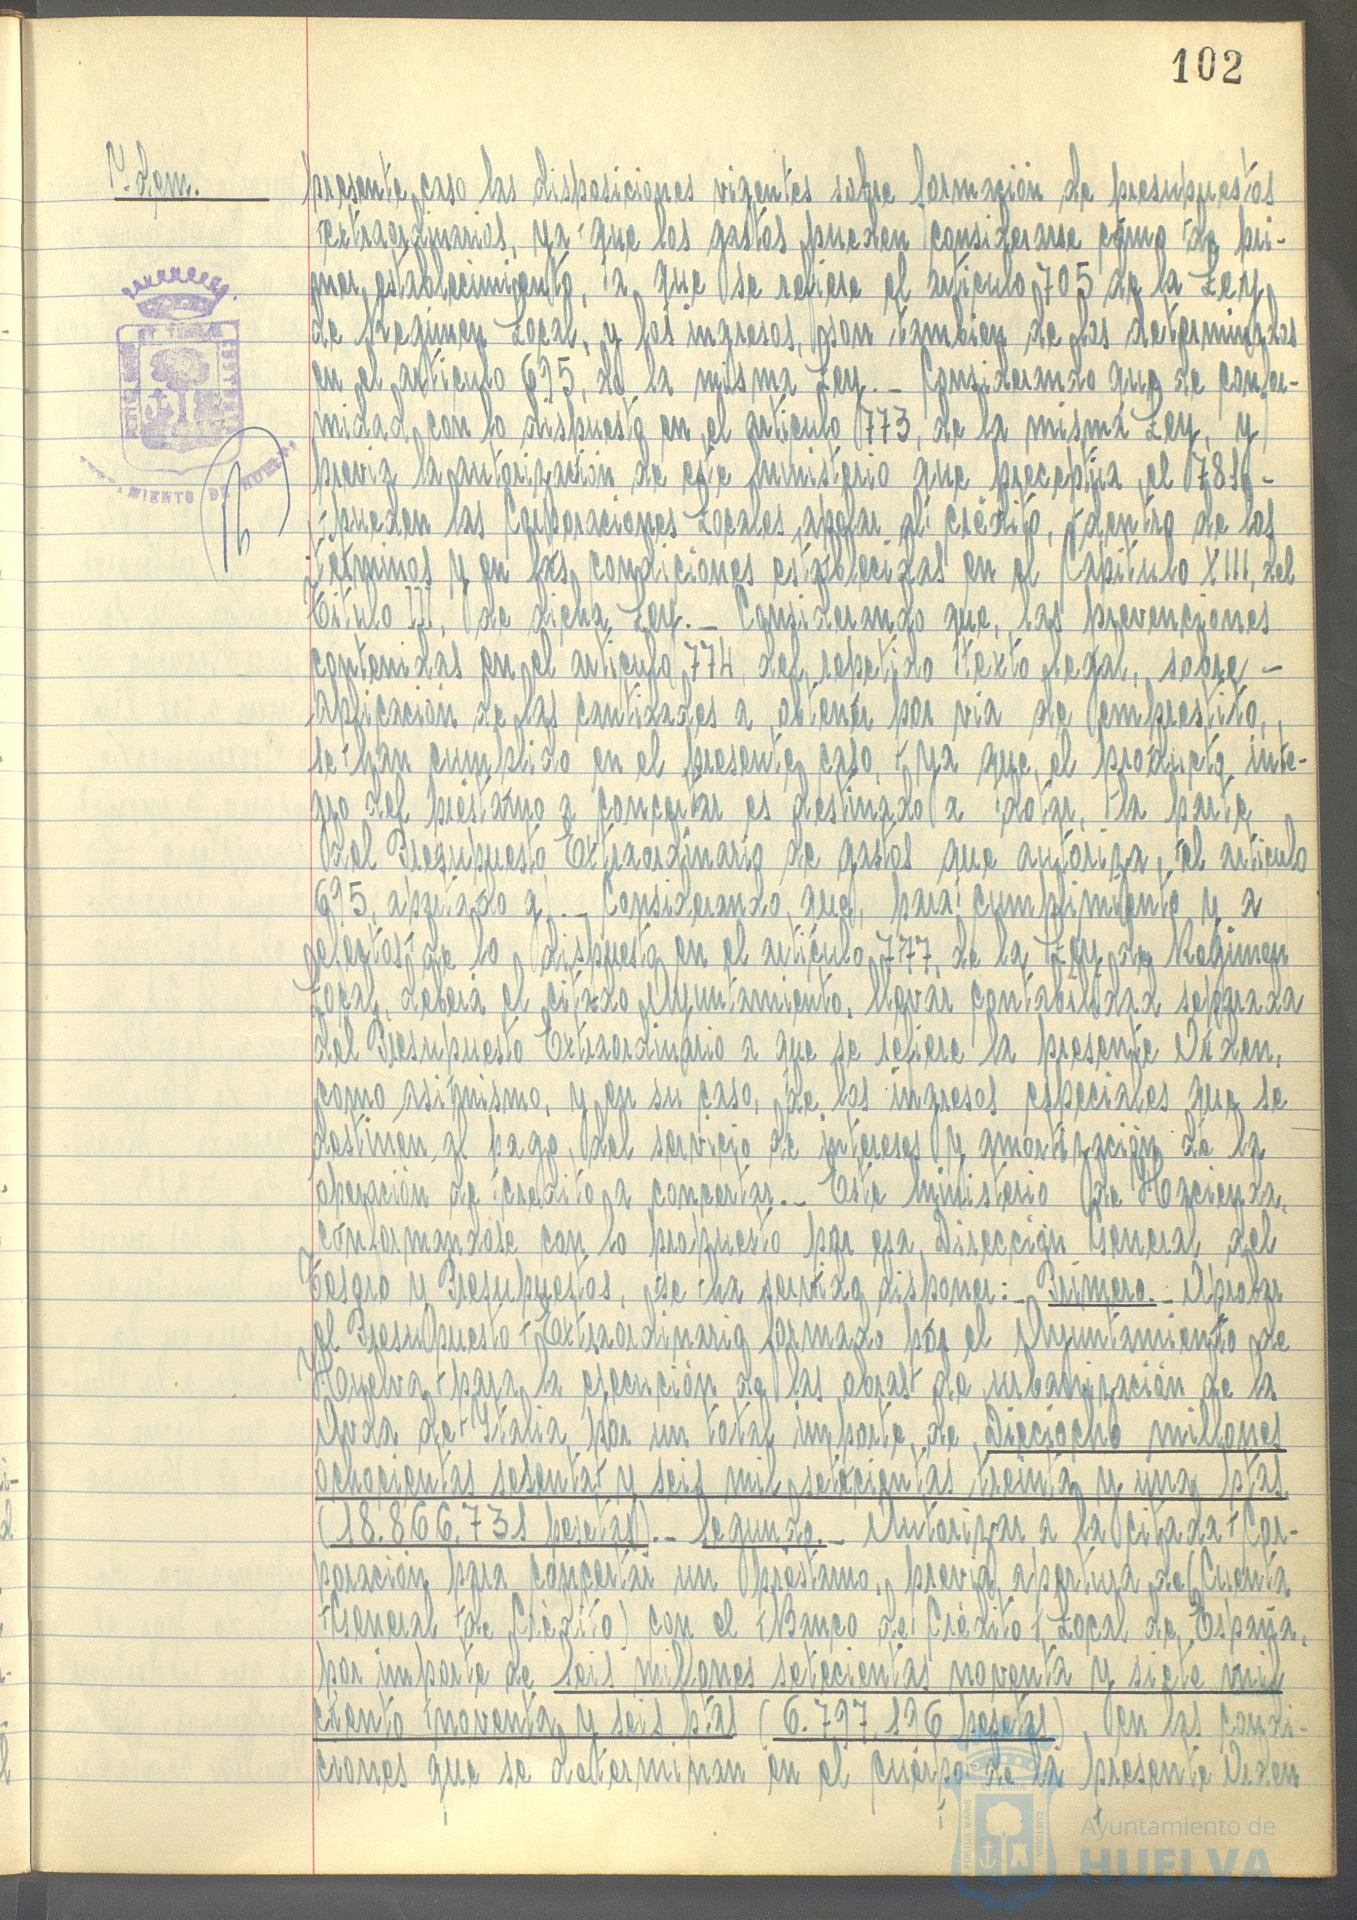 102
Ydem.
presente caso las disposiciones vigentes sobre formación de presupuestos
extraordinarios, ya que los gastos pueden considerarse como de pri-
mer establecimiento, a que se refiere el artículo 705 de la Ley
de Regimen Local, y los ingresos, son tambien de los determinados
en el artículo 695, de la misma Ley.- Considerando que de confor-
midad con lo dispuesto en el artículo 773, de la misma Ley, y
previa la autorización de este Ministerio que preceptúa el 781,-
pueden las Corporaciones Locales apelar al crédito, dentro de los
términos y en las condiciones establecidas en el Capítulo XIII, del
Título III, de dicha Ley.- Considerando que, las prevenciones
contenidas en el artículo 774, del repetido texto legal, sobre -
aplicación de las cantidades a obtener por via de empréstito,
se han cumplido en el presente caso, ya que el producto ínte-
gro del préstamo a concertar es destinado a dotar, la parte
del Presupuesto Extraordinario de gastos que autoriza, el artículo
695, apartado a).- Considerando, que, para cumplimiento y a
efectos de lo dispuesto en el artículo 777, de la Ley de Regimen
Local, deberá el citado Ayuntamiento, llevar contabilidad separada
del Presupuesto Extraordinario a que se refiere la presente Orden,
como asimismo, y en su caso, de los ingresos especiales que se
destinen al pago del servicio de intereses y amortización de la
operación de credito a concertar.- Este Ministerio de Hacienda,
conformandose con lo propuesto por esa Dirección General del
Tesoro y Presupuestos, se ha servido disponer:- Primero.- Aprobar
el Presupuesto Extraordinario formado por el Ayuntamiento de
Huelva para la ejecución de las obras de urbanización de la
Avda de Italia, por un total importe de Dieciocho millones
ochocientas sesenta y seis mil setecientas treinta y una ptas
(18.866.731 pesetas).- Segundo.- Autorizar a la citada Cor-
poración para concertar un préstamo, previa apertura de (Cuenta
General de Crédito) con el Banco de Crédito Local de España,
por importe de seis millones setecientas noventa y siete mil
ciento noventa y seis ptas (6.797.196 pesetas), en las condi-
ciones que se determinan en el cuerpo de la presente Orden
Ayuntamiento de
HUELVA